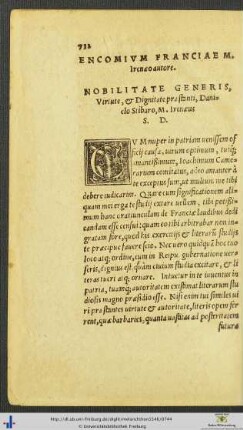 732
ENCOMIVM FRANCIAE M.
Irenæo autore.
NOBILITATE GENERIS,
Virtute, & Dignitate præstanti, Dani-
elo Stibaro, M. Irenæus
S. D.
CVM nuper in patriam uenissem of-
ficij causa, uirum optimum, tuiq;
amantissimum, Ioachimum Came-
rarium comitatus, adeo amanter à
te exceptus sum, ut multum me tibi
debere iudicarim. Quare cum significationem ali-
quam mei erga te studij extare uellem, tibi potissi-
mum hanc oratiunculam de Franciæ laudibus dedi
candam esse censui: quam eo tibi arbitrabar non in-
gratam fore, quod has exercitijs & literarum studijs
te præcipue fauere scio. Nec uero quisquam hoc tuo
loco atq; ordine, cum in Repu. gubernatione uer-
feris, dignius est, quàm eiusmodi studia excitare, & li
teras tueri atq; ornare. Intuetur in te iuuentus in
patria, tuamq; autoritatem existimat literarum stu-
dijs magno præsidio esse. Nisi enim tui similes ui
ri præstantes uirtute & autoritate, literis opem fer-
rent, quæ barbaries, quanta uastitas ad posteritatem
futura
© Universitätsbibliothek Freiburg